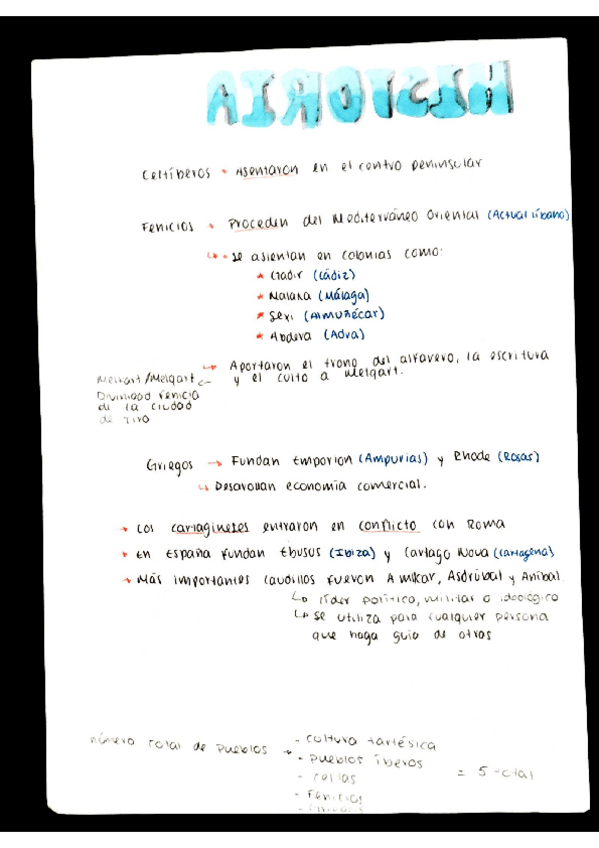 HISTORIA
Celtíberos • Asentaron en el centro peninsular
Fenicios • Proceden del Mediterráneo Oriental (Actual líbano)
↳ • se asientan en colonias como:
* Gadir (Cádiz)
* Malaka (Málaga)
* Sexi (Almuñécar)
* Abdera (Adra)
↳ Aportaron el trono del alfarero, la escritura
y el culto a Melqart.
Melkart/Melqart
Divinidad fenicia
de la ciudad
de Tiro
Griegos → Fundan Emporion (Ampurias) y Rhode (Rosas)
↳ Desarrollan economía comercial.
→ Los cartagineses entraron en conflicto con Roma
→ En España fundan Ebusus (Ibiza) y Cartago Nova (Cartagena)
→ Más importantes caudillos fueron Amilcar, Asdrúbal y Aníbal.
↳ líder político, militar o ideológico
↳ se utiliza para cualquier persona
que haga guía de otros
número total de pueblos →
- cultura tartésica
- pueblos íberos
- celtas
- Fenicios
= 5 total